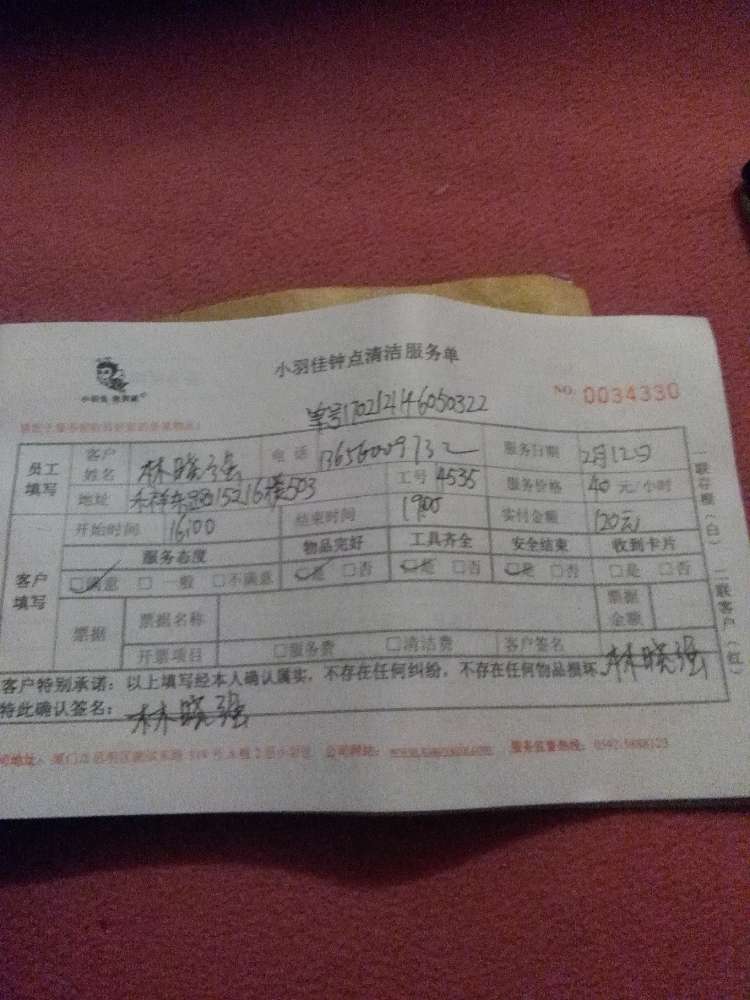 小羽佳钟点清洁服务单
NO. 0034330
单号170212146050322
员工填写 客户姓名 林晓强 电话 13656009732 服务日期 2月12日
地址 503 工号 4535 服务价格 40 元/小时
客户填写 开始时间 16:00 结束时间 19:00 实付金额 120元
服务态度 物品完好 工具齐全 安全结束 收到卡片
☑满意 □一般 □不满意 ☑是 □否 ☑是 □否 ☑是 □否 □是 □否
票据 票据名称 票据金额
开票项目 □服务费 □清洁费 客户签名 林晓强
客户特别承诺：以上填写经本人确认属实，不存在任何纠纷，不存在任何物品损坏。
特此确认签名： 林晓强
公司网址： 服务监督热线：
一联存根（白） 二联客户（红）